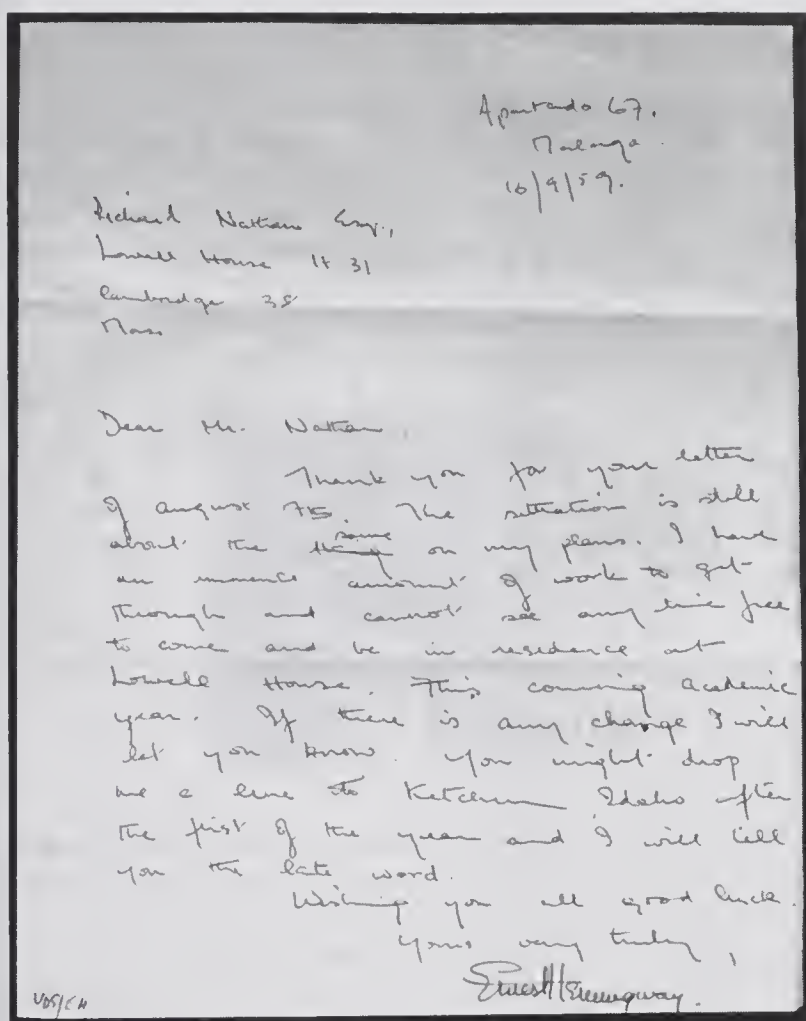 Apartado 67.
Malaga.
10/9/59.
Richard Nathan Esq.,
Lowell House H 31
Cambridge 38
Mass
Dear Mr. Nathan,
Thank you for your letter
of august 7th. The situation is still
about the same on my plans. I have
an immence amount of work to get
through and cannot see any time free
to come and be in residence at
Lowell House. This coming academic
year. If there is any change I will
let you know. You might drop
me a line to Ketchum Idaho after
the first of the year and I will tell
you the late word.
Wishing you all good luck.
Yours very truly,
Ernest Hemingway.
VDS/EH